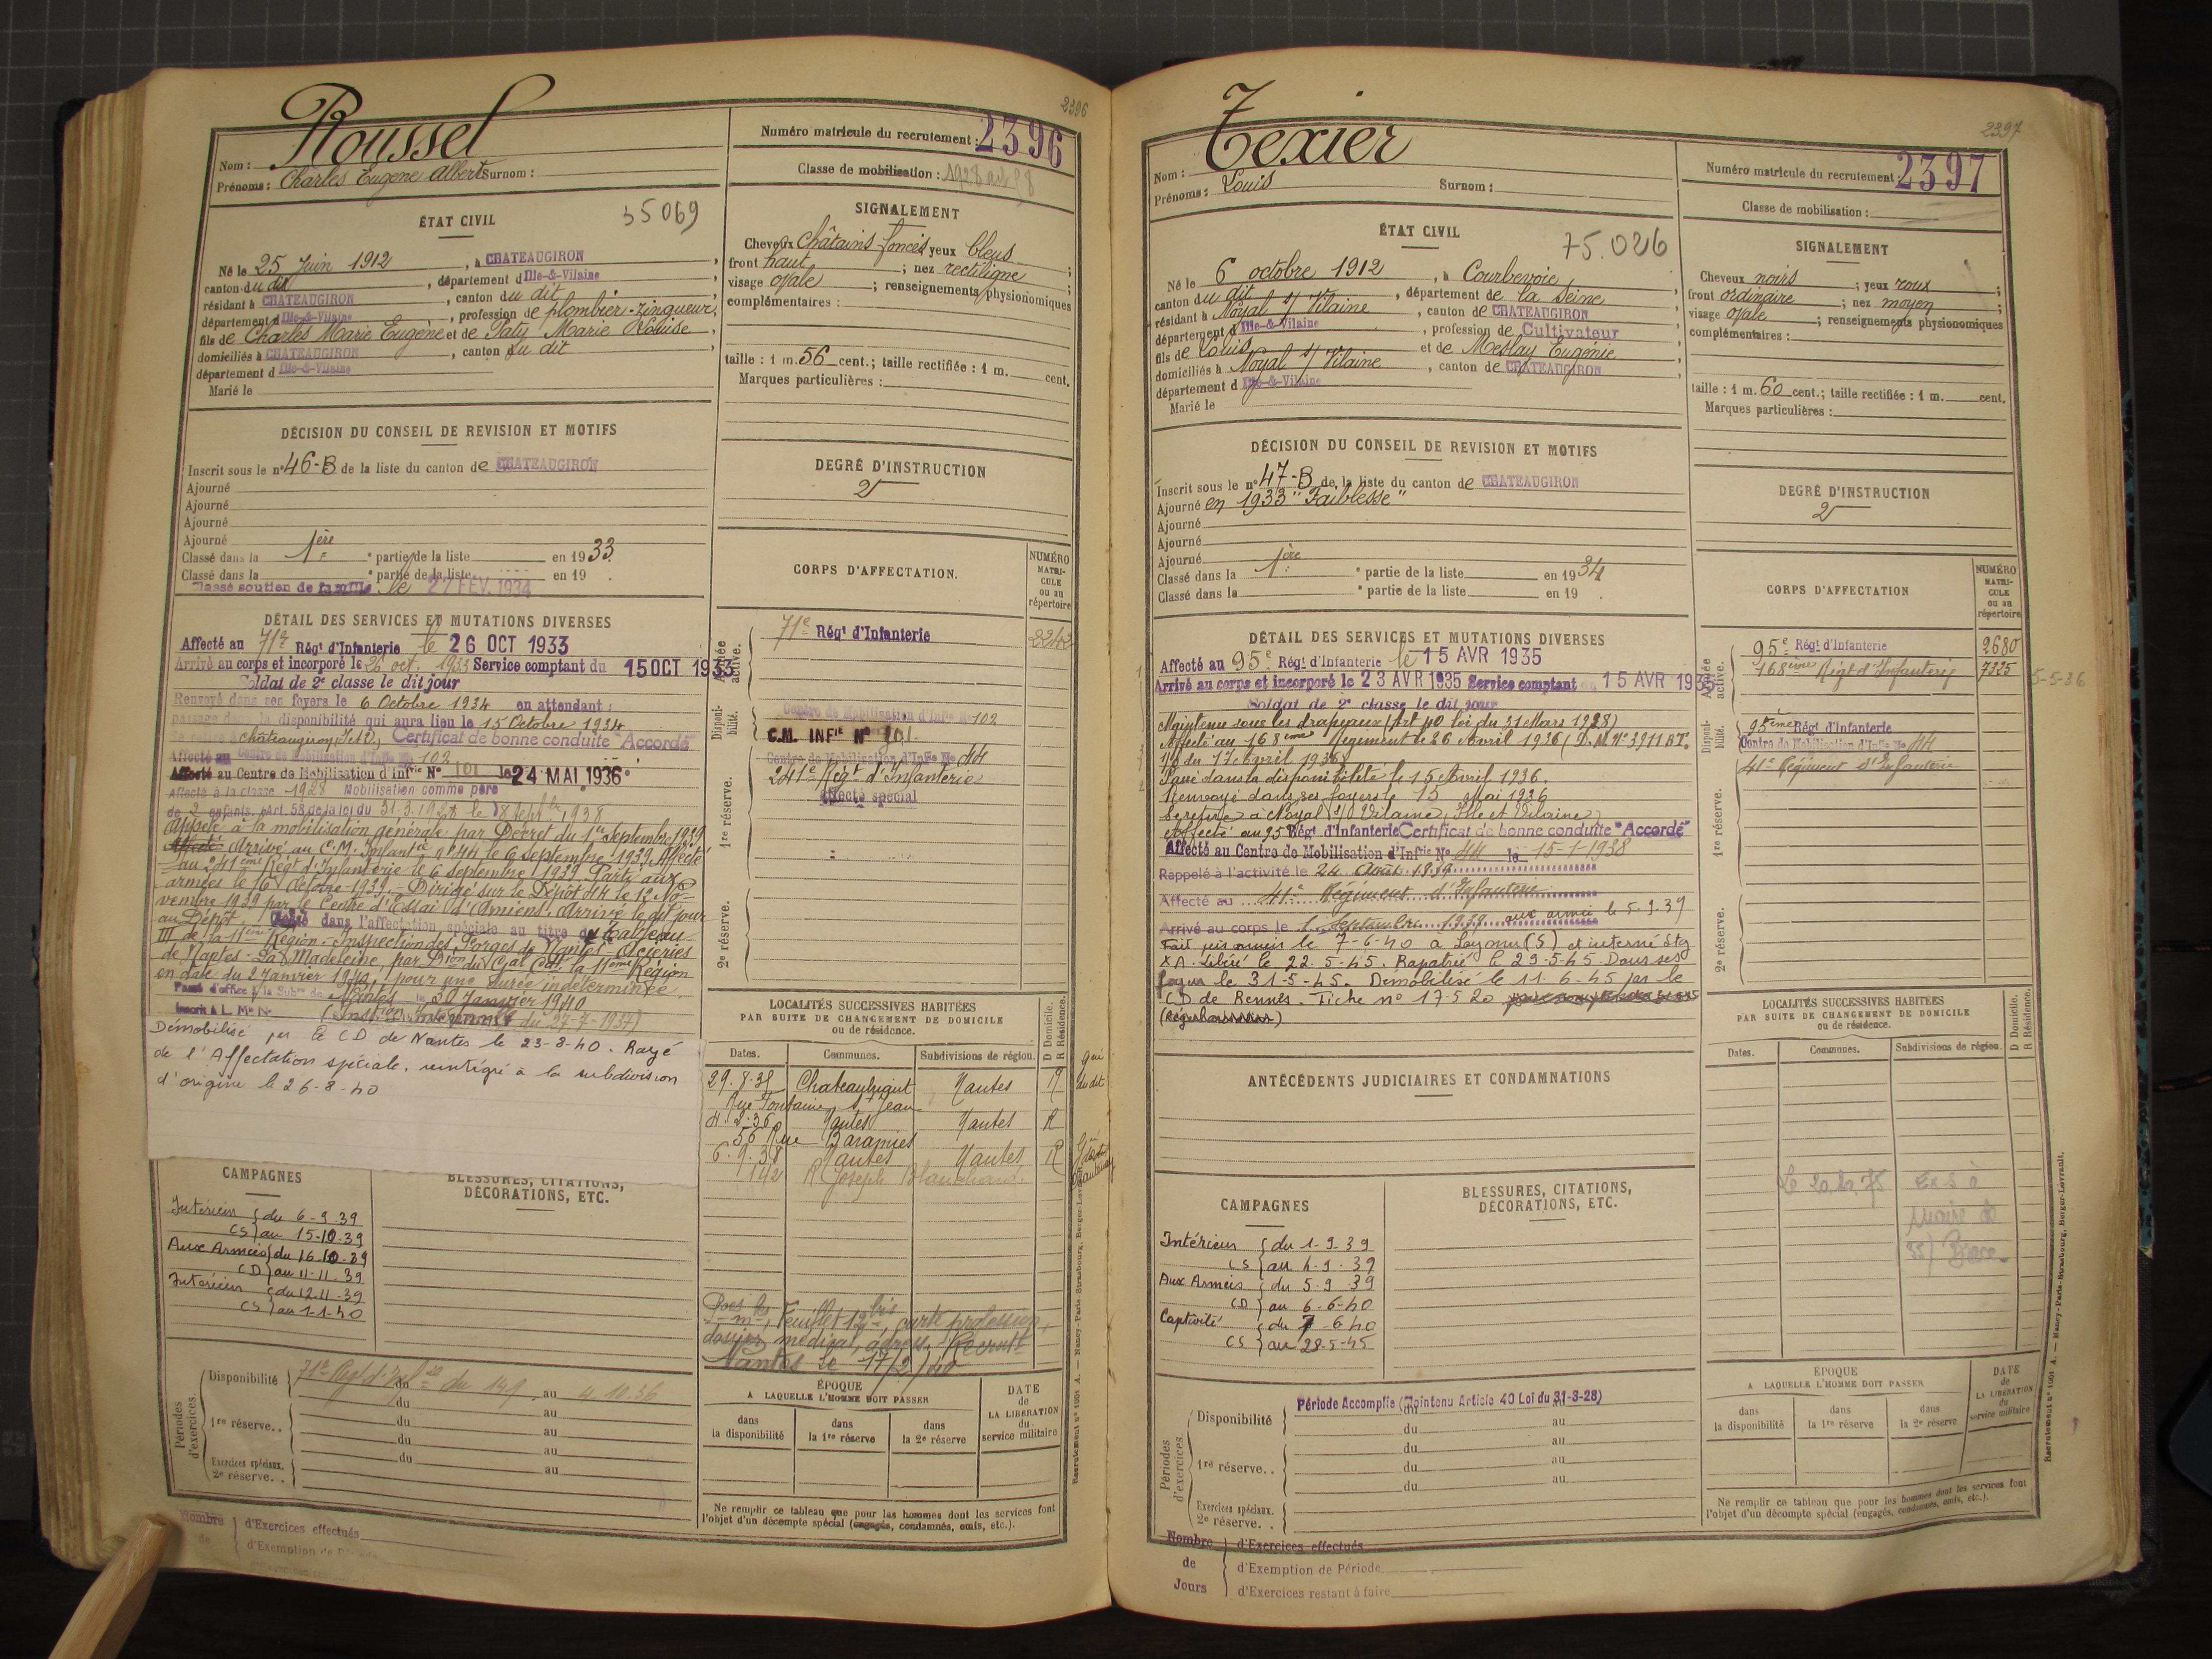 2396
Roussel
Nom :
Prénoms : Charles Eugène Albert Surnom :
Numéro matricule du recrutement : 2396
Classe de mobilisation :
ÉTAT CIVIL
35069
Né le 25 Juin 1912, à CHATEAUGIRON,
canton du dit, département d Ille-&-Vilaine
résidant à CHATEAUGIRON, canton du dit,
département d Ille-&-Vilaine, profession de plombier-zingueur,
fils de Charles Marie Eugène et de Paty Marie Louise,
domiciliés à CHATEAUGIRON, canton du dit,
département d Ille-&-Vilaine
Marié le
SIGNALEMENT
Cheveux châtains foncés yeux bleus ;
front haut ; nez rectiligne ;
visage ovale ; renseignements physionomiques
complémentaires :
taille : 1 m. 56 cent.; taille rectifiée : 1 m. cent.
Marques particulières :
DÉCISION DU CONSEIL DE REVISION ET MOTIFS
Inscrit sous le n° 46-B de la liste du canton de CHATEAUGIRON
Ajourné
Ajourné
Ajourné
Ajourné
Classé dans la 1ère partie de la liste en 1933.
Classé dans la partie de la liste en 19 .
Classé soutien de famille le 27 FEV. 1934
DEGRÉ D'INSTRUCTION
2
DÉTAIL DES SERVICES ET MUTATIONS DIVERSES
Affecté au 71e Régt d'Infanterie le 26 OCT 1933
Arrivé au corps et incorporé le 26 oct. 1933 Service comptant du 15 OCT 1933
Soldat de 2e classe le dit jour
Renvoyé dans ses foyers le 6 Octobre 1934 en attendant
passage dans la disponibilité qui aura lieu le 15 Octobre 1934
Se retire à Châteaugiron (I et V) Certificat de bonne conduite "Accordé"
Affecté au Centre de Mobilisation d'Infie No 102
Affecté au Centre de Mobilisation d'Infrie N° 101 le 24 MAI 1936
Affecté à la classe 1928 Mobilisation comme père
de 2 enfants. Art. 58 de la loi du 31.3.1928 le 8 Septbre 1938
Appelé à la mobilisation générale par Décret du 1er Septembre 1939
Arrivé au C.M. Infanterie n° 44 le 6 septembre 1939 Affecté
au 241ème Régt d'Infanterie le 6 septembre 1939. Parti aux
armées le 16 Octobre 1939. - Dirigé sur le Dépôt 44 le 12 No-
vembre 1939 par le Centre d'Essai d'Amiens. Arrivé le dit jour
au Dépôt. Classé dans l'affectation spéciale au titre du tableau
III de la 11ème Région - Inspection des Forges de Nantes - Aciéries
de Naples - La Madeleine, par Dion du Gal Cdt la 11ème Région
en date du 2 Janvier 1940, pour une durée indéterminée.
Passé d'office à la Subon de Nantes le 30 Janvier 1940
du 27-7-1937)
Démobilisé par le CD de Nantes le 23-8-40. Rayé
de l'Affectation spéciale, réintégré à la subdivision
d'origine le 26-8-40
CORPS D'AFFECTATION.
NUMÉRO MATRICULE ou au répertoire
Armée active.
71e Régt d'Infanterie
Disponibilité.
Centre de Mobilisation d'Infie No 102
C.M. INFie N° 101
1re réserve.
Centre de Mobilisation d'Infie No 44
241e Régt d'Infanterie
Affecté spécial
2e réserve.
LOCALITÉS SUCCESSIVES HABITÉES
PAR SUITE DE CHANGEMENT DE DOMICILE
ou de résidence.
D Domicile.
R Résidence.
Dates. Communes. Subdivisions de région.
29.8.35 Chateaubriant Nantes R
Rue Fontaine St Jean
Nantes Nantes R
56 Rue
6.9.38 Nantes Nantes R
142 R Joseph Blanchard
feuillet 12 bis, carte profession,
dossier médical, adress. Recrutt
Nantes le 17/2/40
CAMPAGNES
Intérieur du 6-9-39
CS au 15-10-39
Aux Armées du 16-10-39
CD au 11-11-39
Intérieur du 12-11-39
CS au 1-1-40
BLESSURES, CITATIONS,
DÉCORATIONS, ETC.
Périodes d'exercices.
Disponibilité 71e Régt d'Infie du 14.9 au 4.10.36
du au
1re réserve. . du au
du au
Exercices spéciaux. 2e réserve. . du au
ÉPOQUE
A LAQUELLE L'HOMME DOIT PASSER
dans la disponibilité
dans la 1re réserve
dans la 2e réserve
DATE de LA LIBÉRATION du service militaire
Ne remplir ce tableau que pour les hommes dont les services font
l'objet d'un décompte spécial (engagés, condamnés, omis, etc.).
Nombre de
d'Exercices effectués
d'Exemption de Période
Recrutement n° 1001 A. — Nancy-Paris-Strasbourg, Berger-Levrault.
2397
Texier
Nom :
Prénoms : Louis Surnom :
Numéro matricule du recrutement : 2397
Classe de mobilisation :
ÉTAT CIVIL
75.026
Né le 6 octobre 1912, à Courbevoie,
canton du dit, département de la Seine,
résidant à Noyal s/ Vilaine, canton de CHATEAUGIRON
département d Ille-&-Vilaine, profession de Cultivateur
fils de Louis et de Meslay Eugénie,
domiciliés à Noyal s/ Vilaine, canton de CHATEAUGIRON
département d Ille-&-Vilaine
Marié le
SIGNALEMENT
Cheveux noirs ; yeux roux ;
front ordinaire ; nez moyen ;
visage ovale ; renseignements physionomiques
complémentaires :
taille : 1 m. 60 cent.; taille rectifiée : 1 m. cent.
Marques particulières :
DÉCISION DU CONSEIL DE REVISION ET MOTIFS
Inscrit sous le n° 47-B de la liste du canton de CHATEAUGIRON
Ajourné en 1933 "Faiblesse"
Ajourné
Ajourné
Ajourné
Classé dans la 1ère partie de la liste en 1934
Classé dans la partie de la liste en 19 .
DEGRÉ D'INSTRUCTION
2
DÉTAIL DES SERVICES ET MUTATIONS DIVERSES
Affecté au 95e Régt d'Infanterie le 15 AVR 1935
Arrivé au corps et incorporé le 23 AVR 1935 Service comptant du 15 AVR 1935
Soldat de 2e classe le dit jour
Maintenu sous les drapeaux (Art 40 loi du 31 Mars 1928)
Affecté au 168ème Régiment le 26 Avril 1936 (D.M. N° 3911 BT.
1/2 du 17 Avril 1936)
Passé dans la disponibilité le 15 Avril 1936.
Renvoyé dans ses foyers le 15 Mai 1936
Se retire à Noyal s/ Vilaine, (Ille et Vilaine)
Affecté au 95e Régt d'Infanterie Certificat de bonne conduite "Accordé"
Affecté au Centre de Mobilisation d'Infrie N° 44 le 15-1-1938
Rappelé à l'activité le 24 Août 1939
Affecté au 41e Régiment d'Infanterie
Arrivé au corps le 1 Septembre 1939 aux armées le 5-9-39
Fait prisonnier le 7-6-40 à Loyonu (S) et interné Stg
XA. Libéré le 22-5-45. Rapatrié le 29-5-45. Dans ses
foyers le 31-5-45. Démobilisé le 11-6-45 par le
CD de Rennes. Fiche n° 17520
CORPS D'AFFECTATION
NUMÉRO MATRICULE ou au répertoire
Armée active.
95e Régt d'Infanterie 2680
168ème Régt d'Infanterie 7325
5-5-36
Disponibilité.
95ème Régt d'Infanterie
Centre de Mobilisation d'Infie No 44
1re réserve.
41e Régiment d'Infanterie
2e réserve.
ANTÉCÉDENTS JUDICIAIRES ET CONDAMNATIONS
LOCALITÉS SUCCESSIVES HABITÉES
PAR SUITE DE CHANGEMENT DE DOMICILE
ou de résidence.
D Domicile.
R Résidence.
Dates. Communes. Subdivisions de région.
CAMPAGNES
Intérieur du 1-9-39
CS au 4-9-39
Aux Armées du 5-9-39
CD au 6-6-40
Captivité du 7-6-40
CS au 28-5-45
BLESSURES, CITATIONS,
DÉCORATIONS, ETC.
Périodes d'exercices.
Disponibilité Période Accomplie (Maintenu Article 40 Loi du 31-3-28)
du au
du au
1re réserve. . du au
du au
Exercices spéciaux. 2e réserve. .
ÉPOQUE
A LAQUELLE L'HOMME DOIT PASSER
dans la disponibilité
dans la 1re réserve
dans la 2e réserve
DATE de LA LIBÉRATION du service militaire
Ne remplir ce tableau que pour les hommes dont les services font
l'objet d'un décompte spécial (engagés, condamnés, omis, etc.).
Nombre de Jours
d'Exercices effectués
d'Exemption de Période
d'Exercices restant à faire
Recrutement n° 1001 A. — Nancy-Paris-Strasbourg, Berger-Levrault.